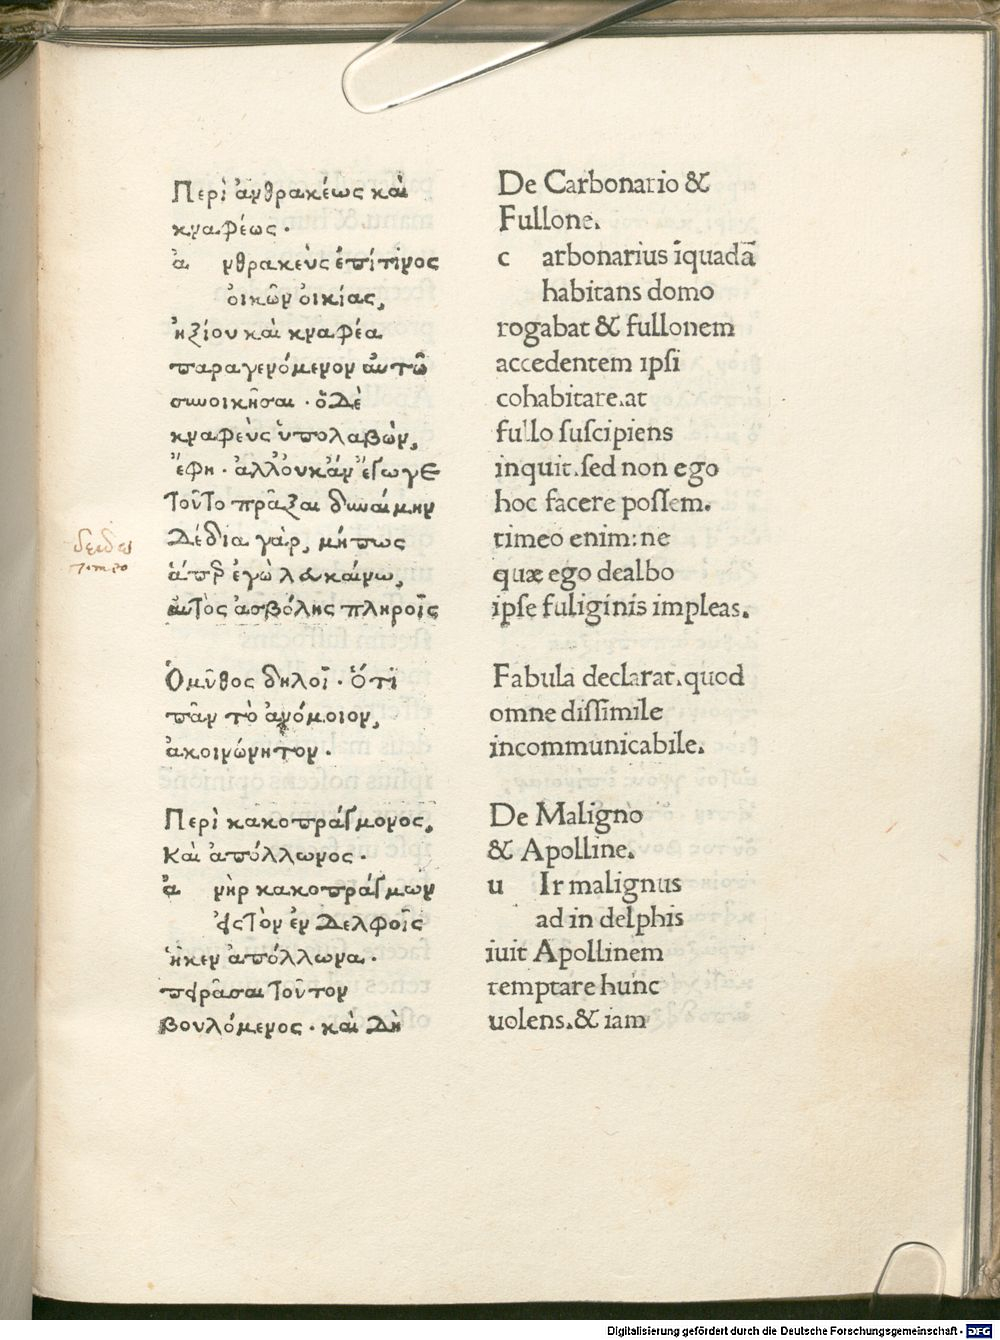 Περὶ ἀνθρακέως καὶ
κναφέως.
ἀ νθρακεὺς ἐπίτινος
οἰκῶν οἰκίας,
ἠξίου καὶ κναφέα
παραγενόμενον αὐτῶ
συνοικῆσαι. ὁ δὲ
κναφεὺς ὑπολαβὼν,
ἔφη. ἀλλ' οὐκ ἂν ἔγωγε
τοῦτο πρᾶξαι δυναίμην
δέδια γὰρ, μήπως
ἅπερ ἐγὼ λευκαίνω,
αὐτὸς ἀσβόλης πληροῖς
Ὁ μῦθος δηλοῖ. ὅτι
πᾶν τὸ ἀνόμοιον,
ἀκοινώνητον.
Περὶ κακοπράγμονος,
Καὶ ἀπόλλωνος.
ἀ νὴρ κακοπράγμων
εἰς τὸν ἐν Δελφοῖς
ἧκεν ἀπόλλωνα.
πειρᾶσαι τοῦτον
βουλόμενος. καὶ δὴ
De Carbonario &
Fullone.
c arbonarius īquadā
habitans domo
rogabat & fullonem
accedentem ipſi
cohabitare.at
fullo ſuſcipiens
inquit.ſed non ego
hoc facere poſſem.
timeo enim:ne
quæ ego dealbo
ipſe fuliginis impleas.
Fabula declarat.quod
omne diſſimile
incommunicabile.
De Maligno
& Apolline.
u Ir malignus
ad in delphis
iuit Apollinem
temptare hunc
uolens.& iam
timeo
Digitalisierung gefördert durch die Deutsche Forschungsgemeinschaft - DFG